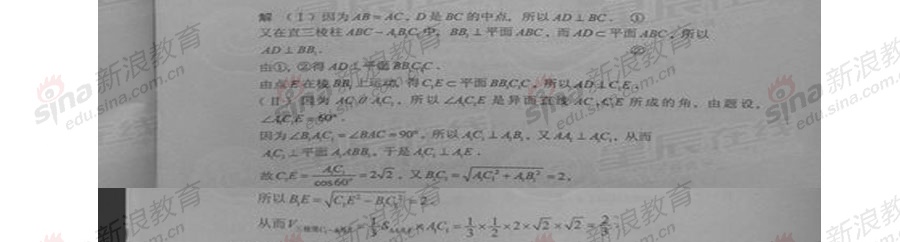 解 (Ⅰ)因为AB=AC,D是BC的中点,所以AD⊥BC. ①
又在直三棱柱ABC-A₁B₁C₁中,BB₁⊥平面ABC,而AD⊂平面ABC,所以
AD⊥BB₁. ②
由①,②得AD⊥平面BB₁C₁C.
由点E在棱BB₁上运动,得C₁E⊂平面BB₁C₁C,所以AD⊥C₁E.
(Ⅱ)因为AC∥A₁C₁,所以∠A₁C₁E是异面直线AC,C₁E所成的角,由题设,
∠A₁C₁E=60°.
因为∠B₁A₁C₁=∠BAC=90°,所以A₁C₁⊥A₁B₁,又AA₁⊥A₁C₁,从而
A₁C₁⊥平面A₁ABB₁,于是A₁C₁⊥A₁E.
故C₁E=A₁C₁/cos60°=2√2,又B₁C₁=√(A₁C₁²+A₁B₁²)=2,
所以B₁E=√(C₁E²-B₁C₁²)=2.
从而V三棱锥=1/3 S×A₁C₁=1/3×1/2×2×√2×√2=2/3
sina新浪教育
edu.sina.com.cn